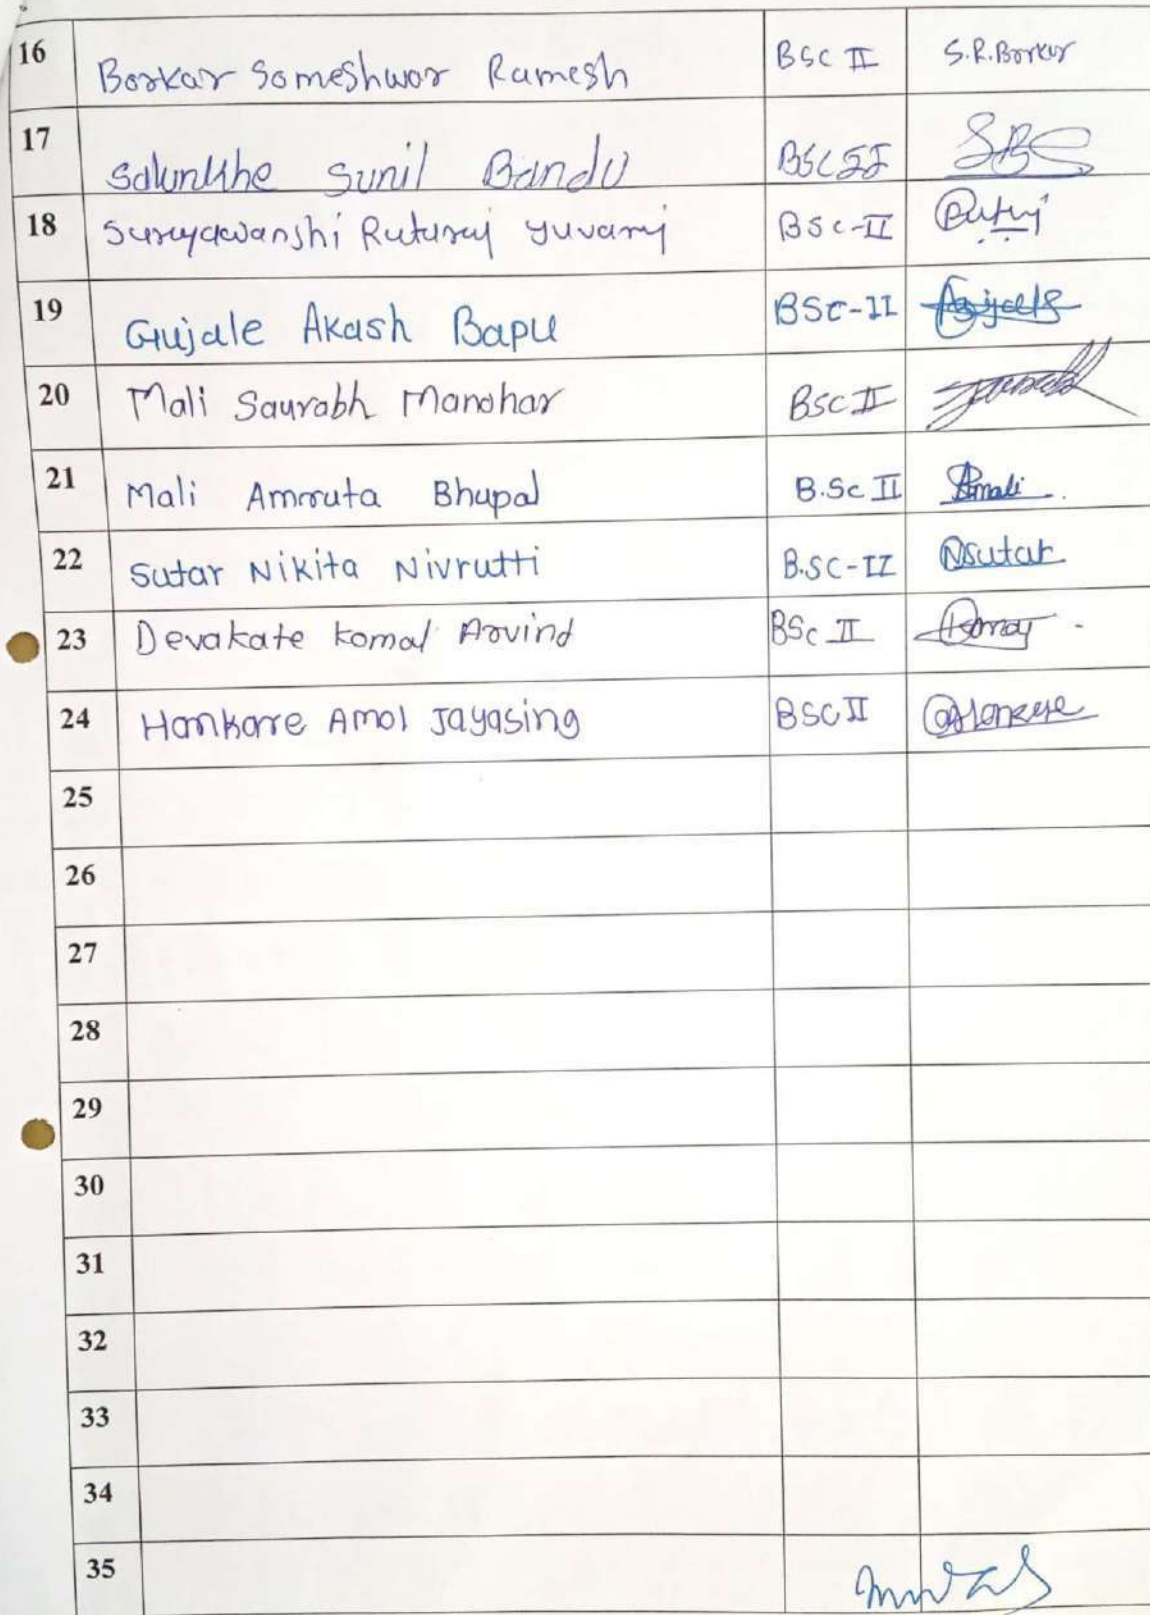 16 Borkar Someshwar Ramesh BSc II S.R.Borkar
17 Salunkhe Sunil Bandu BSc II SBS
18 Suryawanshi Ruturaj Yuvaraj BSc-II
19 Gujale Akash Bapu BSC-II
20 Mali Saurabh Manohar BSC II
21 Mali Amruta Bhupal B.Sc II Amali
22 Sutar Nikita Nivrutti B.SC-II Nsutar
23 Devakate Komal Arvind BSc II
24 Hankare Amol Jayasing BSC II
25
26
27
28
29
30
31
32
33
34
35